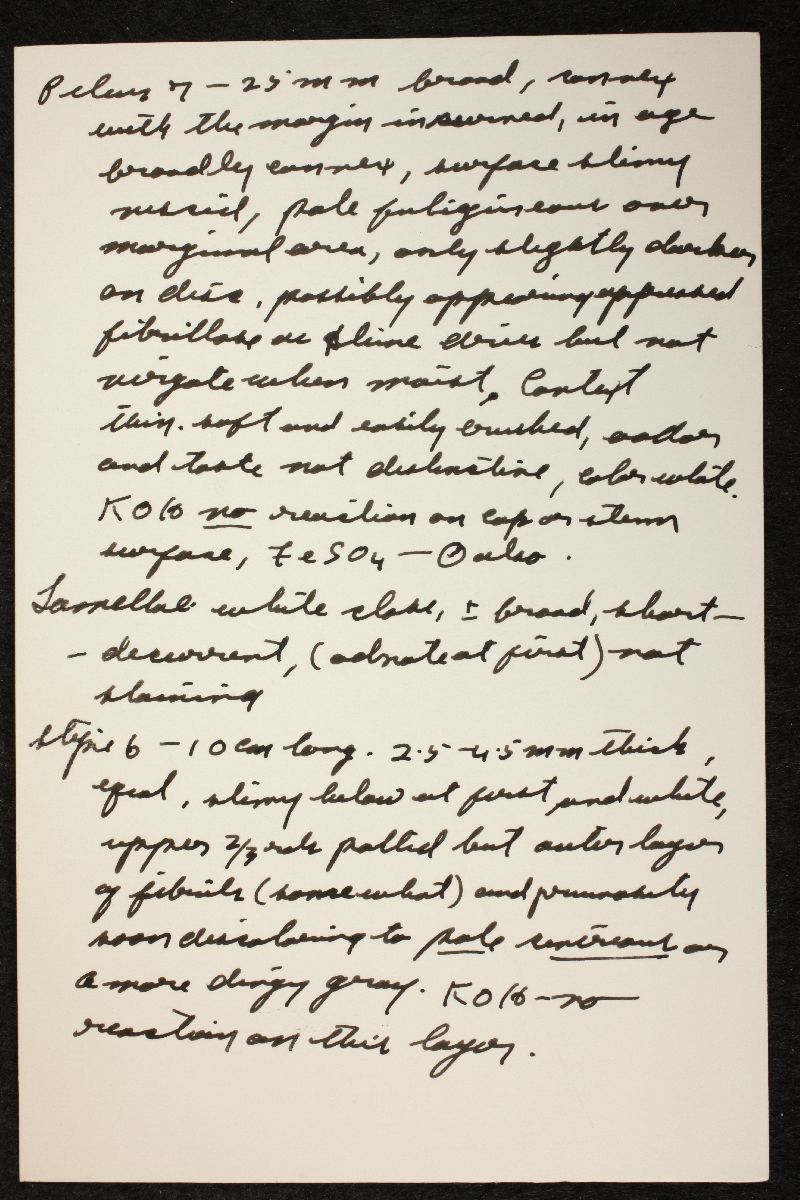 Pileus 7 – 25 mm broad, convex
with the margin incurved, in age
broadly convex, surface slimy
viscid, pale fuligineous over
marginal area, only slightly darker
on disc, possibly appearing appressed
fibrillose as slime dries but not
virgate when moist. Context
thin. soft and easily crushed, oodor
and taste not distinctive, color white.
KOH no reaction on cap or stem
surface, FeSO4 — O also.
Lamellae white close, ± broad, short –
– decurrent, (adnate at first) not
staining
Stipe 6 – 10 cm long. 2.5 – 4.5 mm thick,
equal, slimy below at first and white,
upper 2/3 rds but outer layer
of fibrils (somewhat) and pruinosity
soon discoloring to pale cinereous or
a more dingy gray. KOH – no
reaction on this layer.